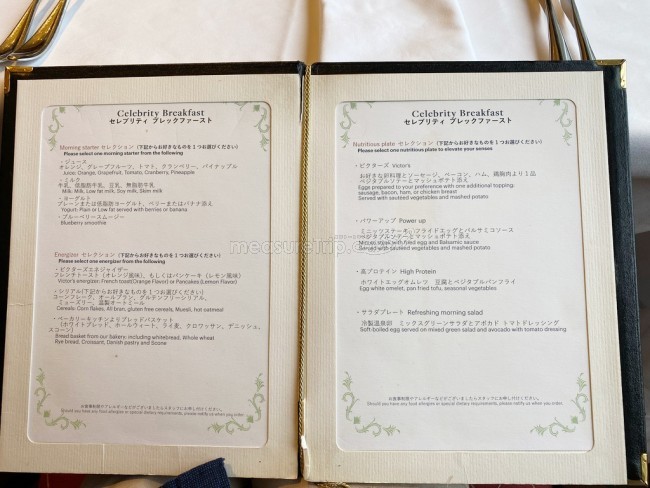 Celebrity Breakfast
セレブリティ ブレックファースト
Morning starter セレクション (下記からお好きなものを１つお選びください)
Please select one morning starter from the following
・ジュース
オレンジ、グレープフルーツ、トマト、クランベリー、パイナップル
Juice: Orange, Grapefruit, Tomato, Cranberry, Pineapple
・ミルク
牛乳、低脂肪牛乳、豆乳、無脂肪牛乳
Milk: Milk, Low fat milk, Soy milk, Skim milk
・ヨーグルト
プレーンまたは低脂肪ヨーグルト、ベリーまたはバナナ添え
Yogurt: Plain or Low fat served with berries or banana
・ブルーベリースムージー
Blueberry smoothie
Energizer セレクション (下記からお好きなものを１つお選びください)
Please select one energizer from the following
・ビクターズエネジャイザー
フレンチトースト (オレンジ風味)、もしくはパンケーキ (レモン風味)
Victor's energizer: French toast(Orange Flavor) or Pancakes(Lemon Flavor)
・シリアル(下記からお好きなものを１つお選びください)
コーンフレーク、オールブラン、グルテンフリーシリアル、
ミューズリー、温製オートミール
Cereals: Corn flakes, All bran, gluten free cereals, Muesli, hot oatmeal
・ベーカリーキッチンよりブレッドバスケット
(ホワイトブレッド、ホールウィート、ライ麦、クロワッサン、デニッシュ、
スコーン)
Bread basket from our bakery: including whitebread, Whole wheat
Rye bread, Croissant, Danish pastry and Scone
お食事制限やアレルギーなどがございましたらスタッフにお申し付けください。
Should you have any food allergies or special dietary requirements, please notify us when you order.
Celebrity Breakfast
セレブリティ ブレックファースト
Nutritious plate セレクション (下記からお好きなものを１つお選びください)
Please select one nutritious plate to elevate your screen
・ビクターズ Victor's
お好きな卵料理とソーセージ、ベーコン、ハム、鶏胸肉より１品
ベジタブルソテーとマッシュポテト添え
Eggs prepared to your preference with one additional topping:
sausage, bacon, ham, or chicken breast
Served with sauteed vegetables and mashed potato
・パワーアップ Power up
ミニッツステーキ、フライドエッグとバルサミコソース
ベジタブルソテーとマッシュポテト添え
Minute steak with fried egg and Balsamic sauce
Served with sauteed vegetables and mashed potato
・高プロテイン High Protein
ホワイトエッグオムレツ 豆腐とベジタブルパンフライ
Egg white omelet, pan fried tofu, seasonal vegetables
・サラダプレート Refreshing morning salad
冷製温泉卵 ミックスグリーンサラダとアボカド トマトドレッシング
Soft-boiled egg served on mixed green salad and avocado with tomato dressing
お食事制限やアレルギーなどがございましたらスタッフにお申し付けください。
Should you have any food allergies or special dietary requirements, please notify us when you order.
measuretrip.